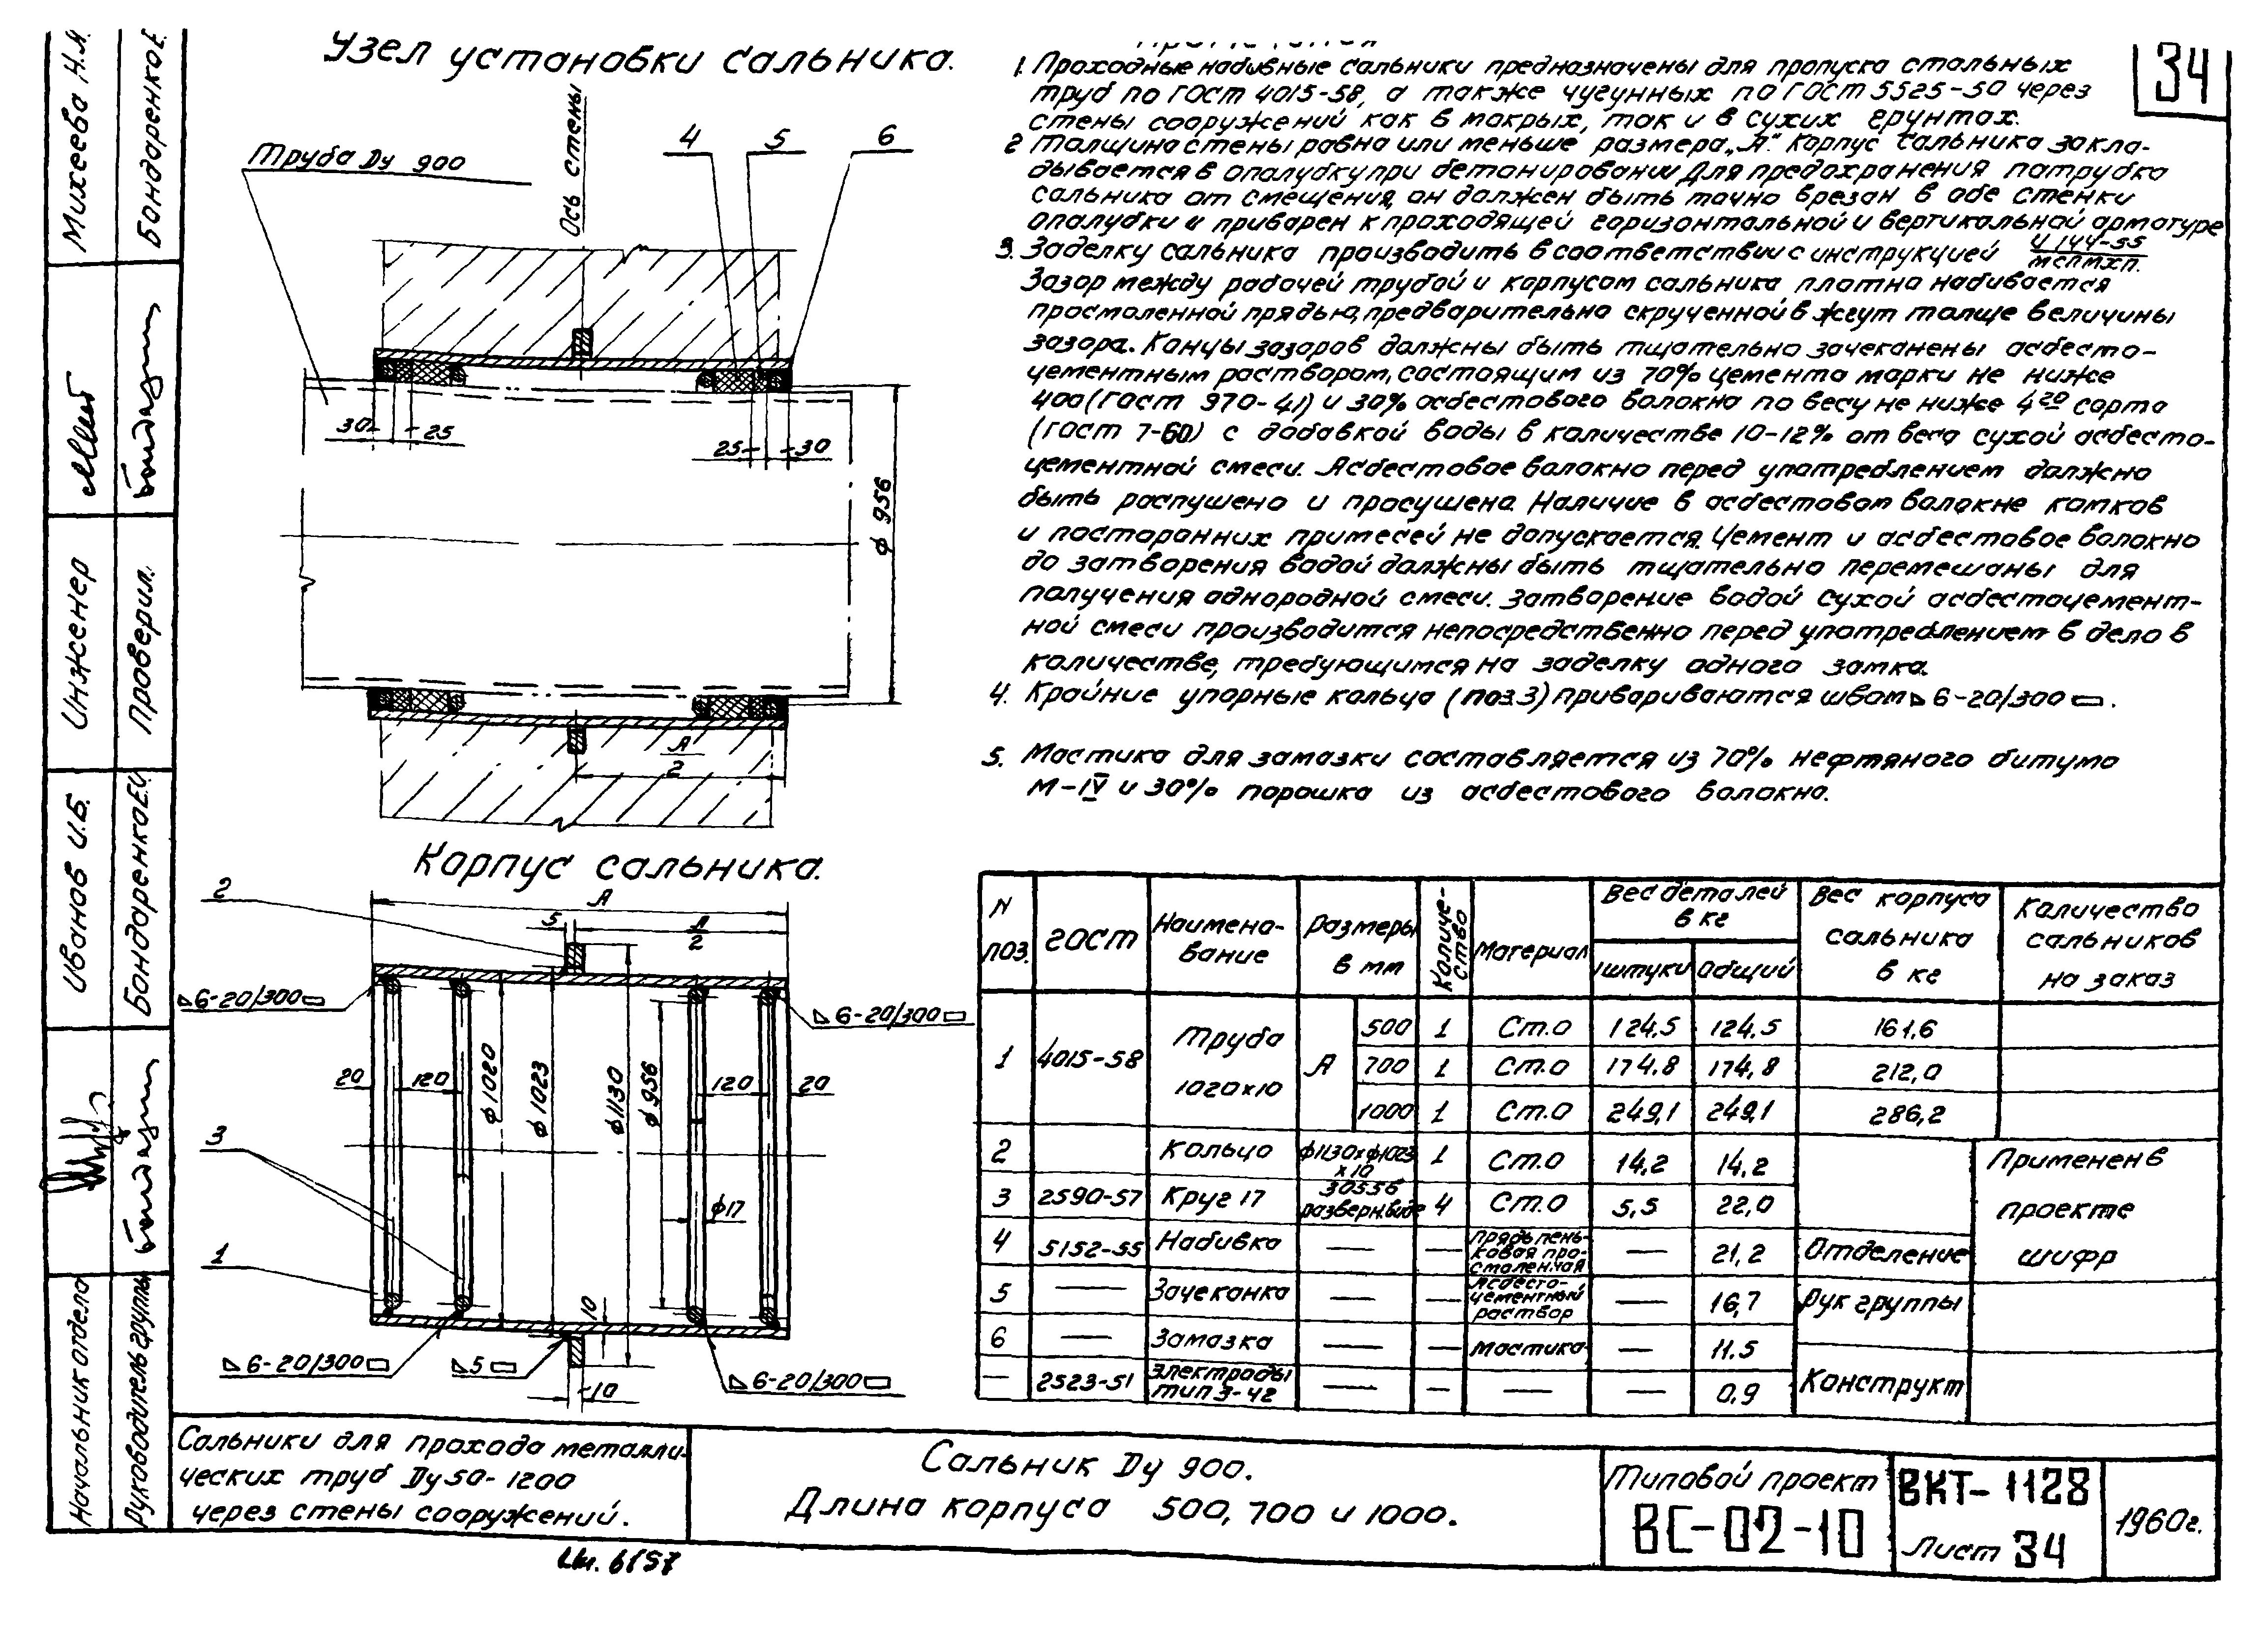 Узел установки сальника.
34
Труба Dу 900
Ось стены
4 5 6
30 25
25 30
ф 956
А
2
1. Проходные набивные сальники предназначены для пропуска стальных
труб по ГОСТ 4015-58, а также чугунных по ГОСТ 5525-50 через
стены сооружений как в мокрых, так и в сухих грунтах.
2 Толщина стены равна или меньше размера „А". Корпус сальника закла-
дывается в опалубку при бетонировании Для предохранения патрубка
сальника от смещения, он должен быть точно врезан в обе стенки
опалубки и приварен к проходящей горизонтальной и вертикальной арматуре
3. Заделку сальника производить в соответствии с инструкцией И 144-55
МСПМХП.
Зазор между рабочей трубой и корпусом сальника плотно набивается
просмоленной прядью, предварительно скрученной в жгут толще величины
зазора. Концы зазоров должны быть тщательно зачеканены асбесто-
цементным раствором, состоящим из 70% цемента марки не ниже
400 (ГОСТ 970-41) и 30% асбестового волокна по весу не ниже 4го сорта
(ГОСТ 7-60) с добавкой воды в количестве 10-12% от веса сухой асбесто-
цементной смеси. Асбестовое волокно перед употреблением должно
быть распушено и просушено. Наличие в асбестовом волокне комков
и посторонних примесей не допускается. Цемент и асбестовое волокно
до затворения водой должны быть тщательно перемешаны для
получения однородной смеси. Затворение водой сухой асбестоцемент-
ной смеси производится непосредственно перед употреблением в дело в
количестве, требующимся на заделку одного замка.
4. Крайние упорные кольца (поз.3) привариваются швом 6-20/300.
5. Мастика для замазки составляется из 70% нефтяного битума
М-IV и 30% порошка из асбестового волокна.
Корпус сальника.
2
А
5
А
2
6-20/300
6-20/300
20 120 120 20
ф1020
ф1023
ф1130
ф956
ф17
3
1
10
6-20/300
5
10
6-20/300
N поз. ГОСТ Наимено-вание Размеры в мм Количе-ство Материал Вес деталей в кг 1 штуки Общий Вес корпуса сальника в кг Количество сальников на заказ
1 4015-58 Труба 1020х10 А 500 1 Ст.0 124,5 124,5 161,6
700 1 Ст.0 174,8 174,8 212,0
1000 1 Ст.0 249,1 249,1 286,2
2 Кольцо ф1130хф1023 х10 1 Ст.0 14,2 14,2
3 2590-57 Круг 17 3055б разверн.виде 4 Ст.0 5,5 22,0
4 5152-55 Набивка — — Прядь пень-ковая про-смоленная — 21,2
5 — Зачеканка — — Асбесто-цементный раствор — 16,7
6 — Замазка — — мастика — 11.5
— 2523-51 Электроды тип Э-42 — — — — 0,9
Применен в
проекте
шифр
Отделение
Рук группы
Конструкт
Сальники для прохода металли-
ческих труб Dу 50-1200
через стены сооружений.
Сальник Dу 900.
Длина корпуса 500, 700 и 1000.
Типовой проект
ВС-02-10
ВКТ-1128
Лист 34
1960г.
Ин. 6157
Михеева Н.А.
Бондаренко Е.
Инженер
Проверил.
Иванов И.Б.
Бондаренко Е.С.
Начальник отдела
Руководитель группы